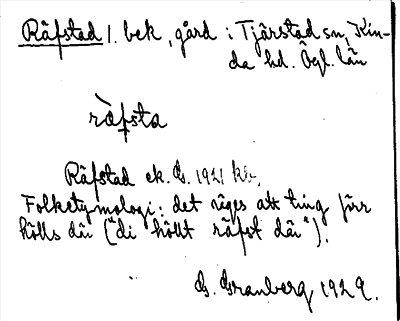 Räfstad 1. bek, gård i Tjärstad sn, Kin-
da hd. Ögl. län
räfsta
Räfstad ek. G. 1921 kb.
Folketymologi: det säges att ting förr
hölls där ("di höllt räfst där").
G. Granberg 1929.